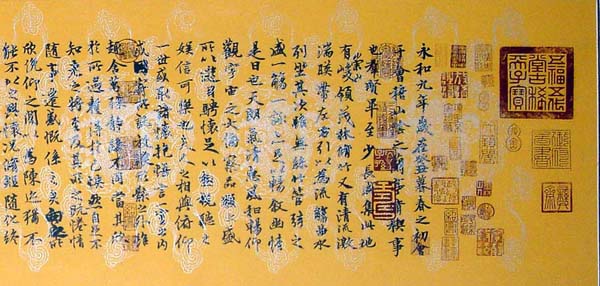 永和九年歲在癸丑暮春之初會
于會稽山陰之蘭亭脩稧事
也群賢畢至少長咸集此地
有崇山峻領茂林脩竹又有清流激
湍暎帶左右引以為流觴曲水
列坐其次雖無絲竹管弦之
盛一觴一詠亦足以暢敘幽情
是日也天朗氣清惠風和暢仰
觀宇宙之大俯察品類之盛
所以遊目騁懷足以極視聽之
娛信可樂也夫人之相與俯仰
一世或取諸懷抱悟言一室之內
或因寄所託放浪形骸之外雖
趣舍萬殊靜躁不同當其欣
於所遇蹔得於己怏然自足不
知老之將至及其所之既惓情
隨事遷感慨係之矣向之所
欣俛仰之閒以為陳迹猶不
能不以之興懷況脩短隨化終